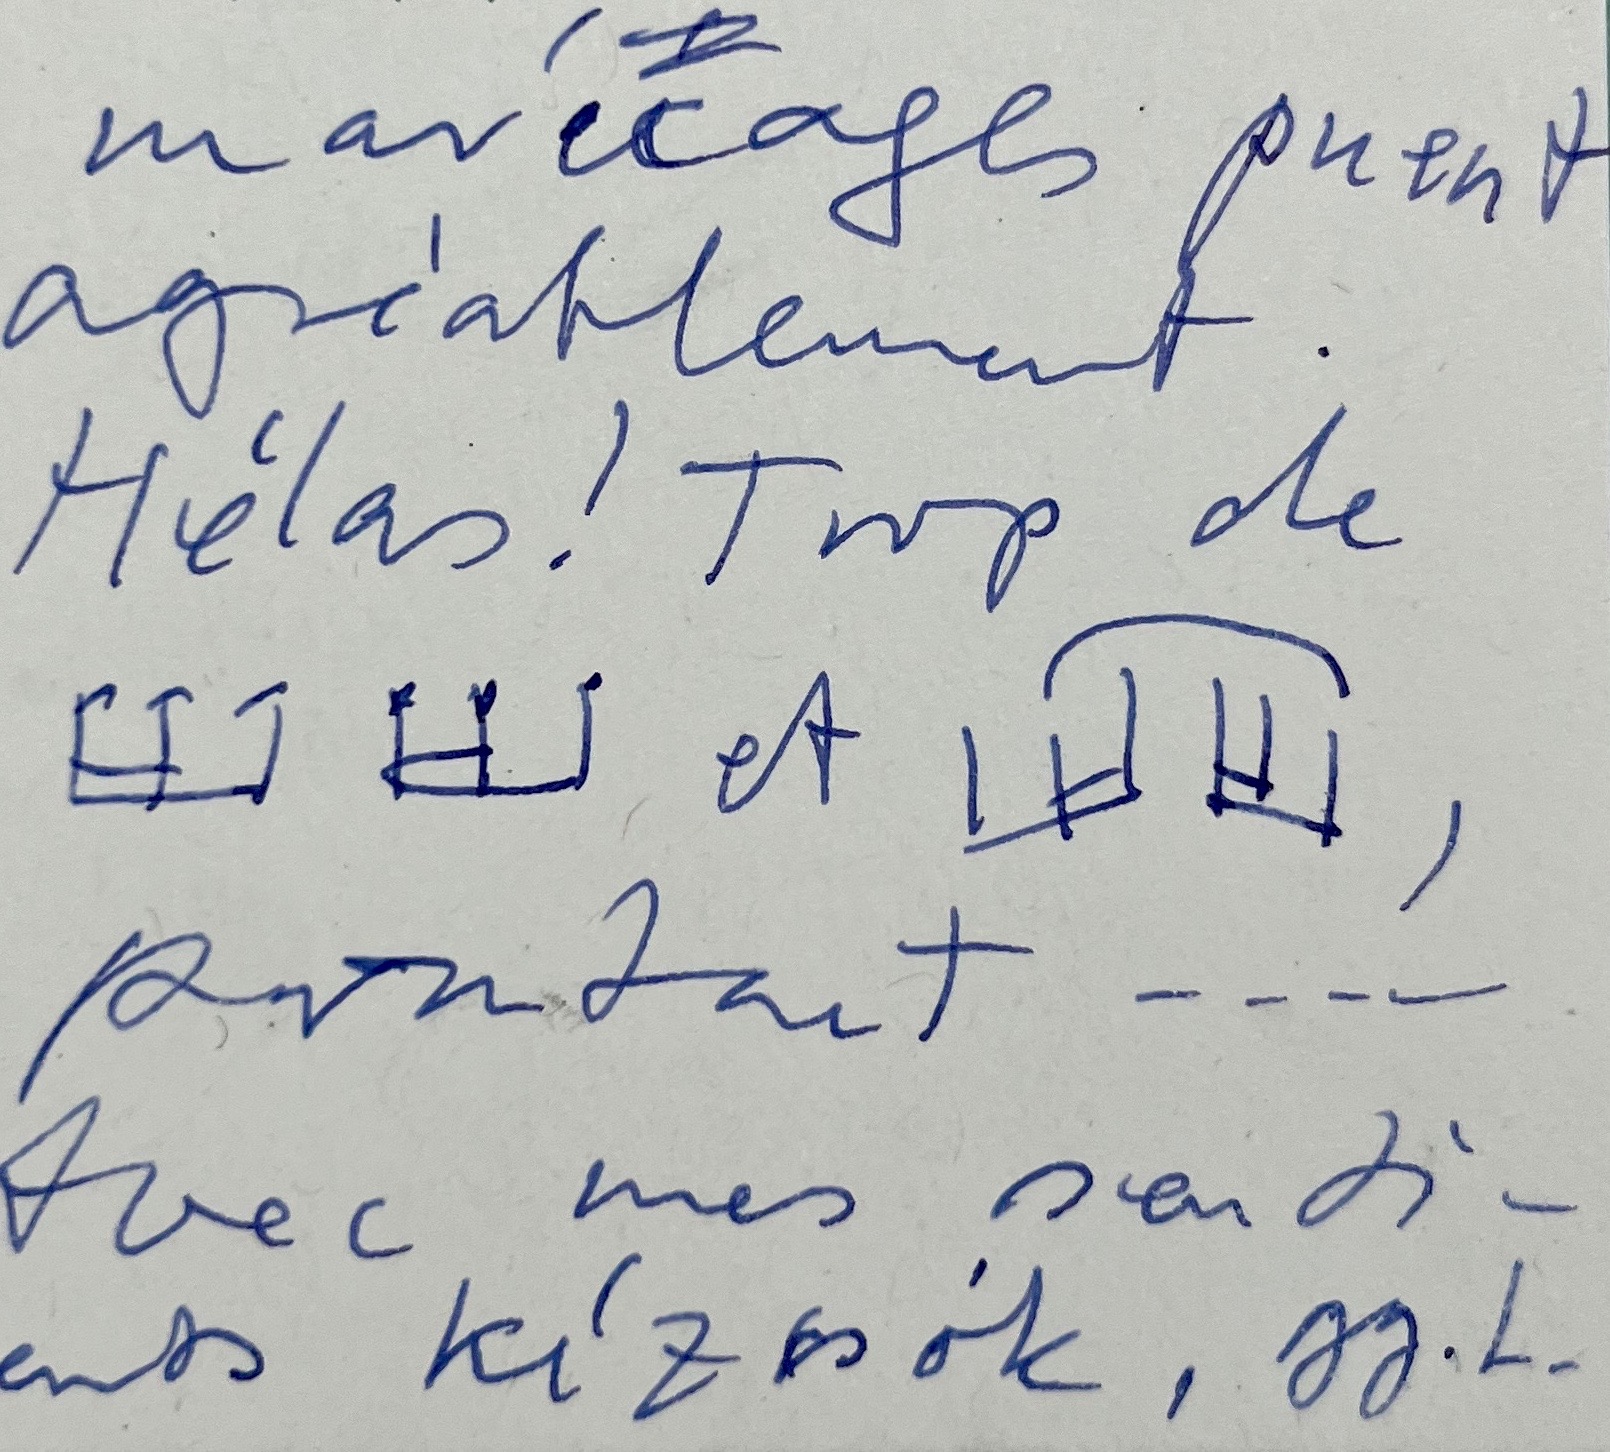 marécages puent
agréablement.
Hélas! Trop de
et ,
pourtant ----
Avec mes senti-
ents kézsók, gg. L.